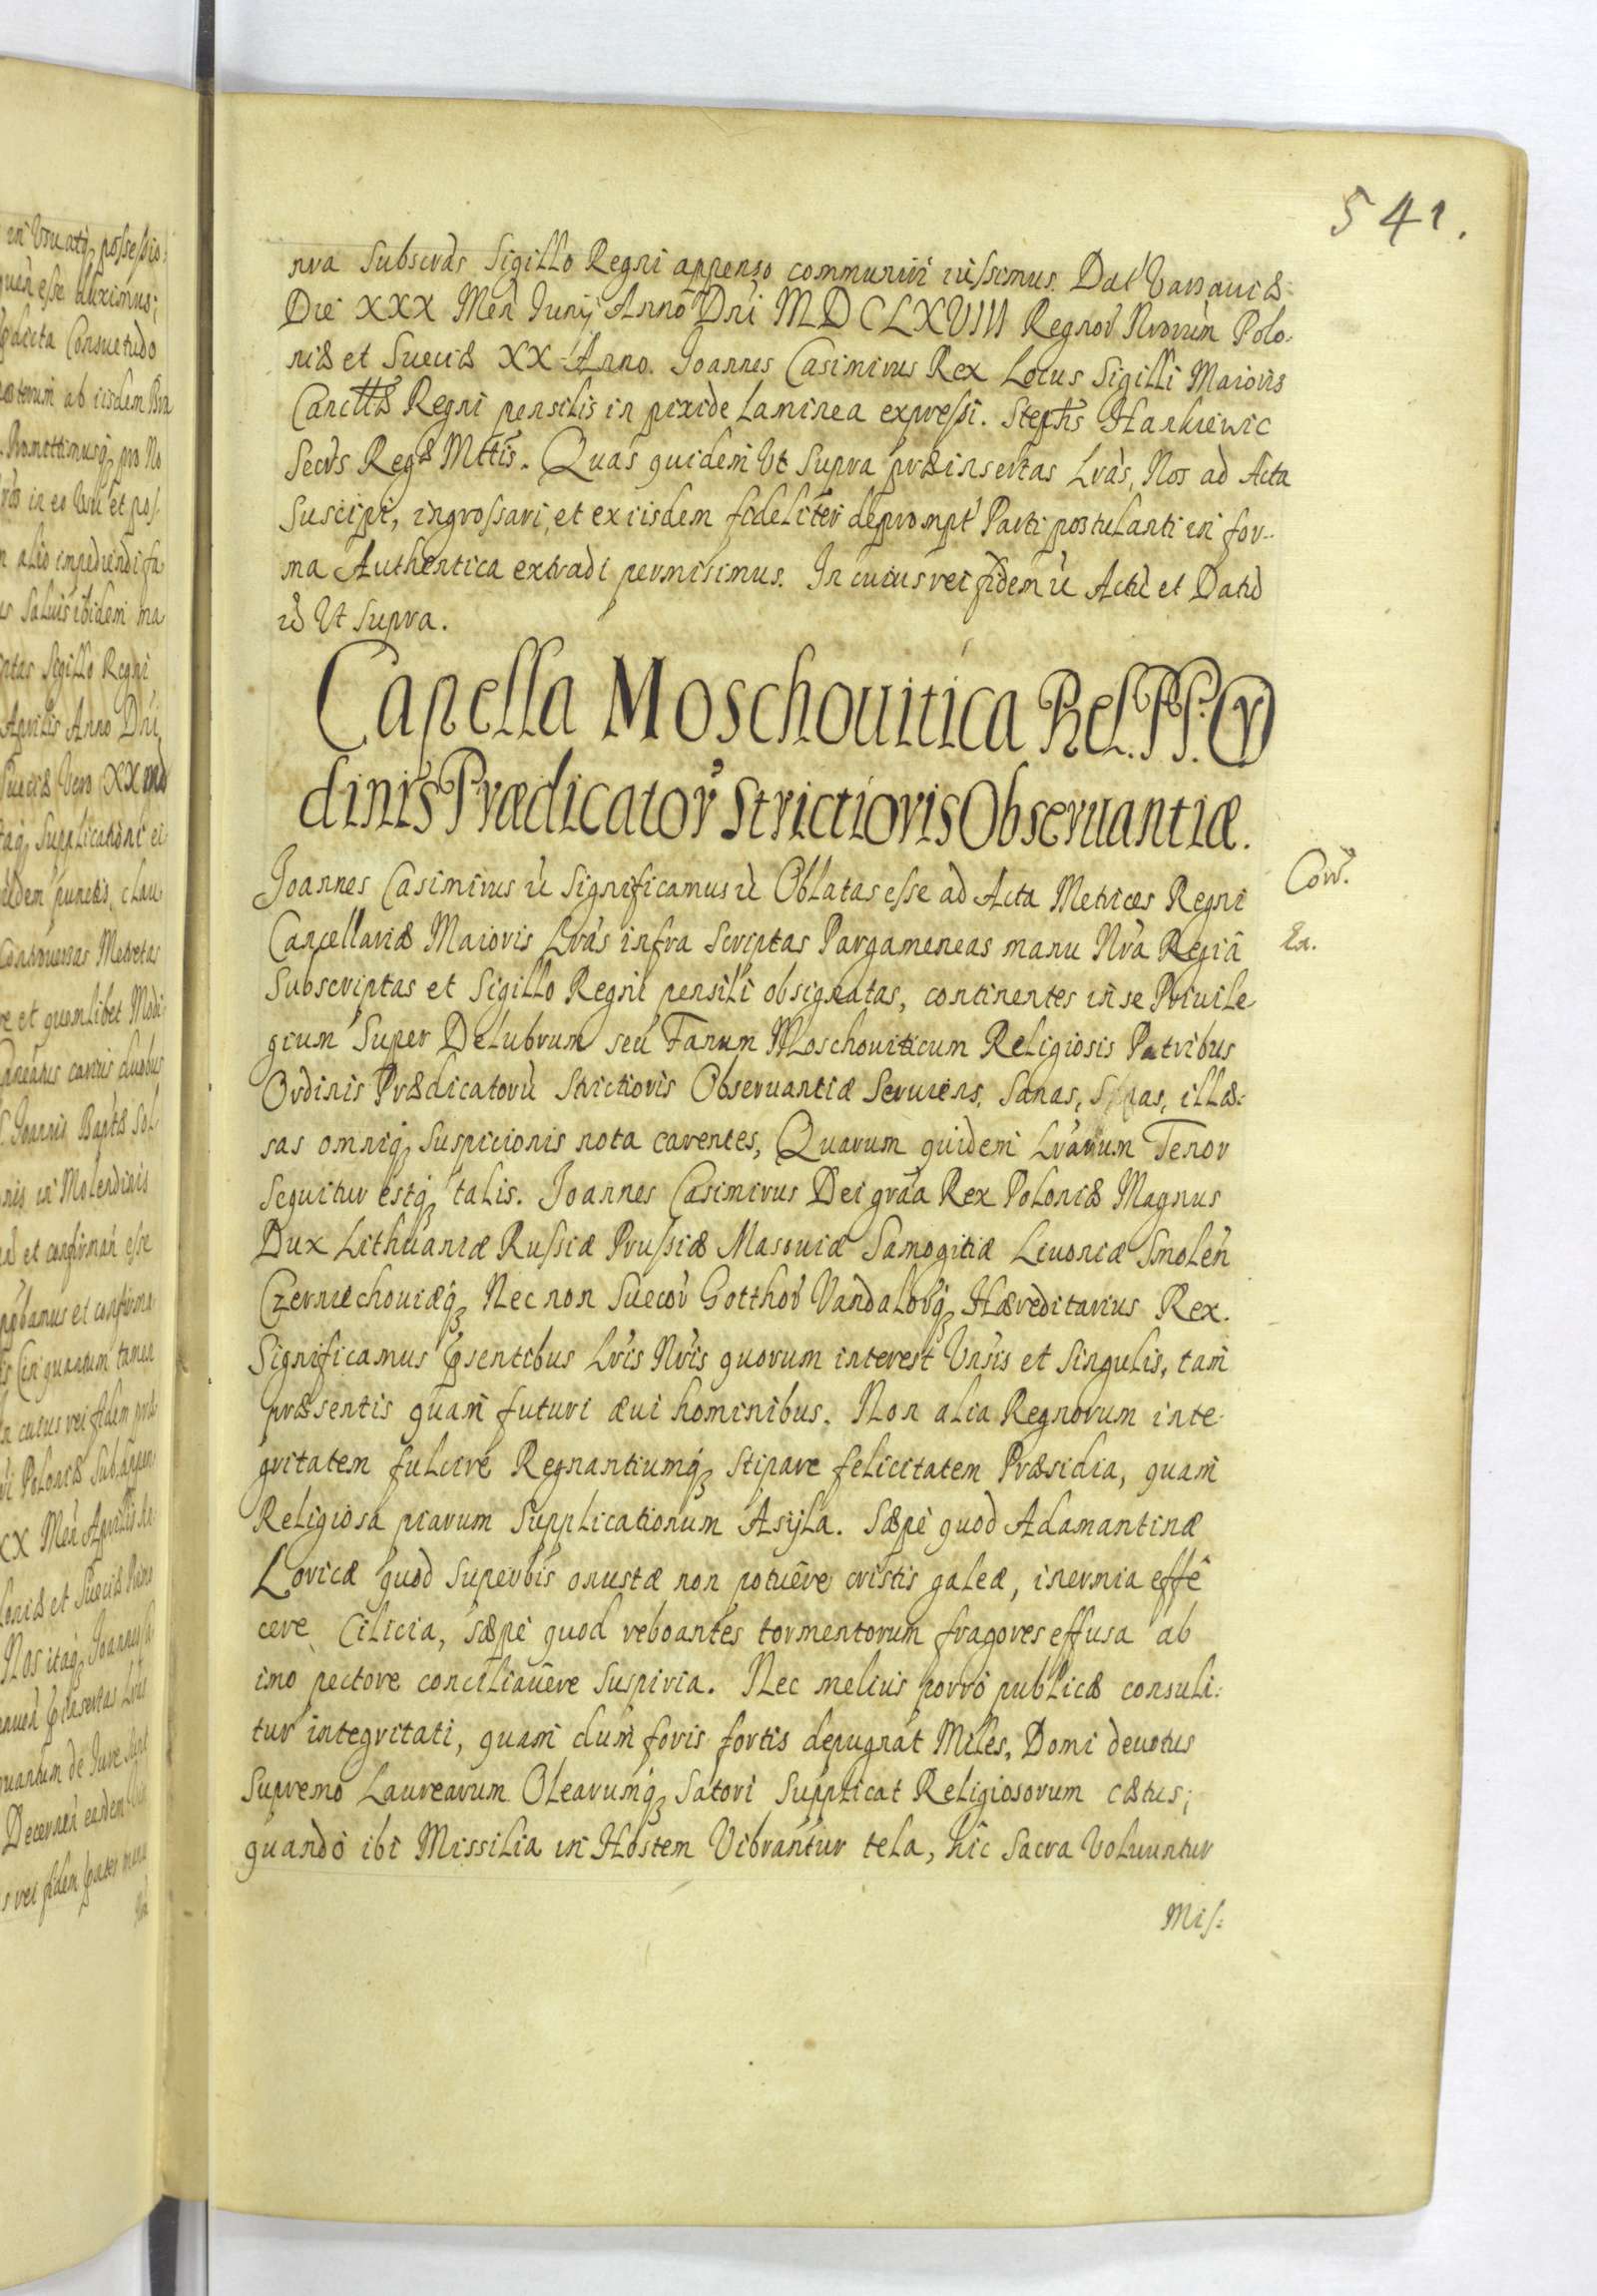 541.
nra Subscrās Sigillo Regni appenso communiri iussimus. Dat Varsauiæ
Die XXX Men Iunij Anno Dni MDCLXVIII Regnor Nrorum Polo-
niæ et Sueciæ XX Anno. Joannes Casimirus Rex Locus Sigilli Maioris
Cancllæ Regni pensilis in pixide laminea expressi. Stephs Hankiewic
Secrs Regæ Mttis. Quas quidem Ut Supra præinsertas Lras, Nos ad Acta
Suscipi, ingrossari, et ex iisdem fideliter deprompt Parti postulanti in for-
ma Authentica extradi permisimus. In cuius rei fidem &c Actū et Datū
&c Ut Supra.
Capella Moschouitica Rel. PP. Or
dinis Prædicator Strictioris Obseruantiæ.
Joannes Casimirus &c Significamus &c Oblatas esse ad Acta Metrices Regni
Corr.
Cancellariæ Maioris Lras infra Scriptas Pargameneas manu Nra Regiâ
Ex.
Subscriptas et Sigillo Regni pensili obsignatas, continentes in se Priuile-
gium Super Delubrum seu Fanum Moschouiticum Religiosis Patribus
Ordinis Prædicatorū Strictioris Obseruantiæ Seruiens, Sanas, Saluas, illæ-
sas omniq; Suspicionis nota carentes, Quarum quidem Lrarum Tenor
Sequitur estq; talis. Joannes Casimirus Dei graa Rex Poloniæ Magnus
Dux Lithuaniæ Russiæ Prussiæ Masouiæ Samogitiæ Liuoniæ Smolen
Czerniechouiæq; Nec non Suecor Gotthor Vandalorq; Hæreditarius Rex.
Significamus pntibus Lris Nris quorum interest Vnsis et Singulis, tam
præsentis quam futuri æui hominibus. Non alia Regnorum inte-
gritatem fulcire Regnantiumq; stipare felicitatem Præsidia, quam
Religiosa piarum Supplicationum Asyla. Sæpe quod Adamantinæ
Loricæ quod Superbis onustæ non potuêre cristis galeæ, inermia effê
cere Cilicia, sæpe quod reboantes tormentorum fragores effusa ab
imo pectore conciliauêre Suspiria. Nec melius porro publicæ consuli-
tur integritati, quam dum foris fortis depugnat Miles, Domi deuotus
Supremo Laurearum Olearumq; Satori Supplicat Religiosorum cætus;
quando ibi Missilia in Hostem Vibrantur tela, hic Sacra Voluuntur
Mis-